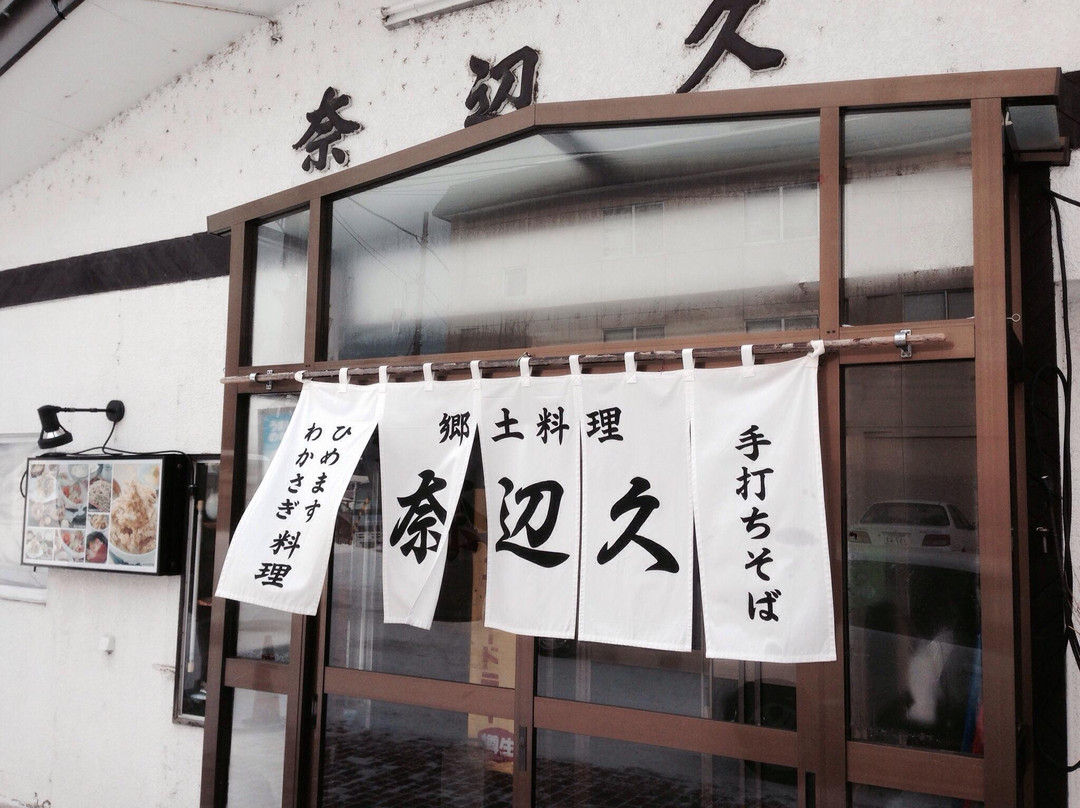 奈辺久
郷土料理
奈辺久
手打ちそば
ひめます
わかさぎ料理